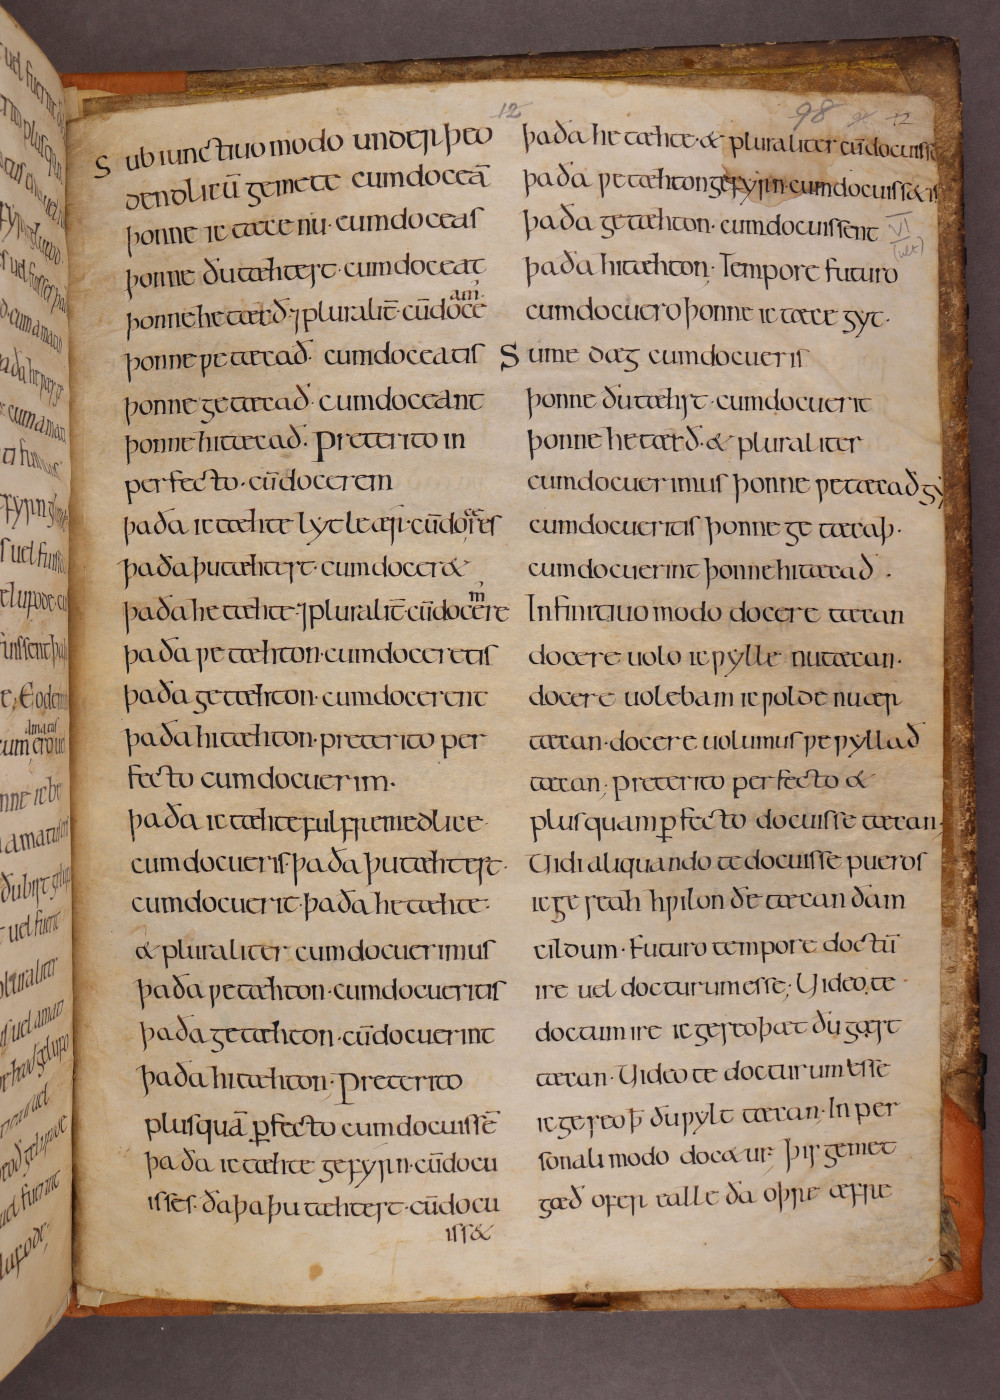 12
98
Subiunctiuo modo underþeo
dendlicū gemete cumdoceā
þonne ic tæce nu· cumdoceas
þonne ðu tæhtest· cumdoceat
am
þonne he tæcð·⁊ pluralit̄· cūdoce
þonne ƿe tæcað· cumdoceatis
þonne ge tæcað· cumdoceant
þonne hi tæcað. Preterito in
perfecto· cūdocerem
þa ða ic tæhte lytle ær· cūdoceres
þa ða þu tæhtest· cumdocer&
m
þa ða he tæhte·⁊ pluralit̄· cūdocere
þa ða ƿe tæhton· cumdoceretis
þa ða ge tæhton· cumdocerent
þa ða hi tæhton· preterito per
fecto cumdocuerim·
þa ða ic tæhte fulfremedlice·
cumdocueris· þa ða þu tæhtest·
cumdocuerit· þa ða he tæhte·
& pluraliter cumdocuerimus
þa ða ƿe tæhton· cumdocueritis
þa ða ge tæhton· cūdocuerint
þa ða hi tæhton· Preterito
plusquā ꝑfecto cumdocuissē
þa ða ic tæhte gefyrn· cūdocu
isses· ða þa þu tæhtest· cūdocu
iss&
þa ða he tæhte· & pluraliter cūdocuisse
þa ða ƿe tæhton gefyrn· cumdocuiss&is
þa ða ge tæhton· cumdocuissent
VI
þa ða hi tæhton· Tempore futuro
cumdocuero þonne ic tæce gyt·
Sume dæg cumdocueris
þonne ðu tæhst· cumdocuerit
þonne he tæcð· & pluraliter
cumdocuerimus þonne ƿe tæcað gy
cumdocueritis þonne ge tæcaþ·
cumdocuerint þonne hi tæcað .
Infinitiuo modo docere tæcan
docere uolo ic ƿylle nu tæcan·
docere uolebam ic ƿolde nu ær
tæcan· docere uolumus ƿe ƿyllað
tæcan; preterito perfecto &
plusquam ꝑfecto docuisse tæcan·
Uidi aliquando te docuisse pueros
ic geseah hƿilon ðe tæcan ðam
cildum· Futuro tempore doctū
ire uel docturum esse; Uideo te
doctum ire ic geseo þæt ðu gæst
tæcan· Uideo te docturum esse
ic geseo ꝥ ðu ƿylt tæcan· In per
sonali modo docetur þis gemet
gæð ofer ealle ða oþre æfre